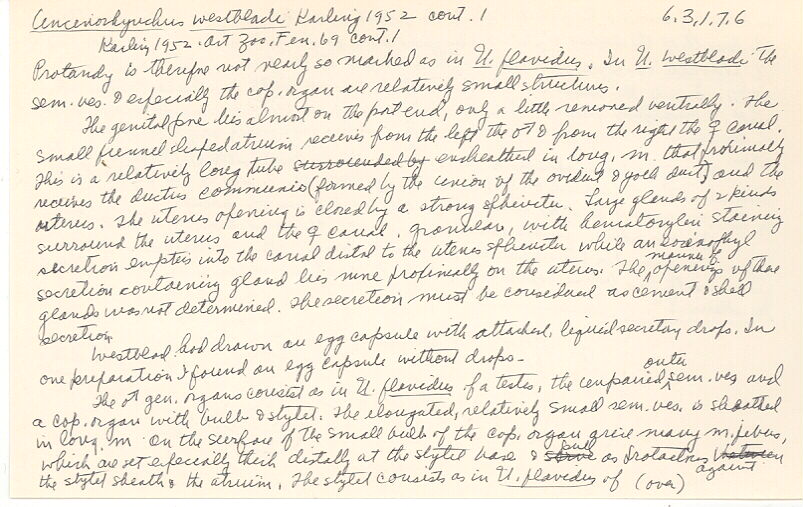 Uncinorhynchus westbladi Karling 1952 cont. 1 6.3.1.7.6
Karling 1952. Art Zoo. Fen. 69 cont. 1
Protandy is therefore not nearly so marked as in U. flavidus. In U. westbladi the
sem. ves. & especially the cop. organ are relatively small structures.
The genital pore lies almost on the post end, only a little removed ventrally. The
small funnel shaped atrium receives from the left the ♂ & from the right the ♀ canal.
This is a relatively long tube surrounded by ensheathed in long. m. that proximally
receives the ductus communis (formed by the union of the oviduct & yolk duct) and the
uterus. The uterus opening is closed by a strong sphincter. Large glands of 2 kinds
surround the uterus and the ♀ canal. Granular, with hematoxylin staining
secretion empties into the canal distal to the uterus sphincter while an eosinophyl
secretion containing gland lies more proximally on the uterus. The manner of openings of these
glands was not determined. The secretion must be considered as cement & shell
secretion.
Westblad had drawn an egg capsule with attached, liquid secretory drops. In
one preparation I found an egg capsule without drops.
The ♂ gen. organs consist as in U. flavidus of a testes, the unpaired outer sem. ves and
a cop. organ with bulb & stylet. The elongated, relatively small sem. ves. is sheathed
in long. m. On the surface of the small bulb of the cop. organ arise many m. fibers,
which are set especially thick distally at the stylet base & as protractors between against
the stylet sheath & the atrium. The stylet consists as in U. flavidus of (over)